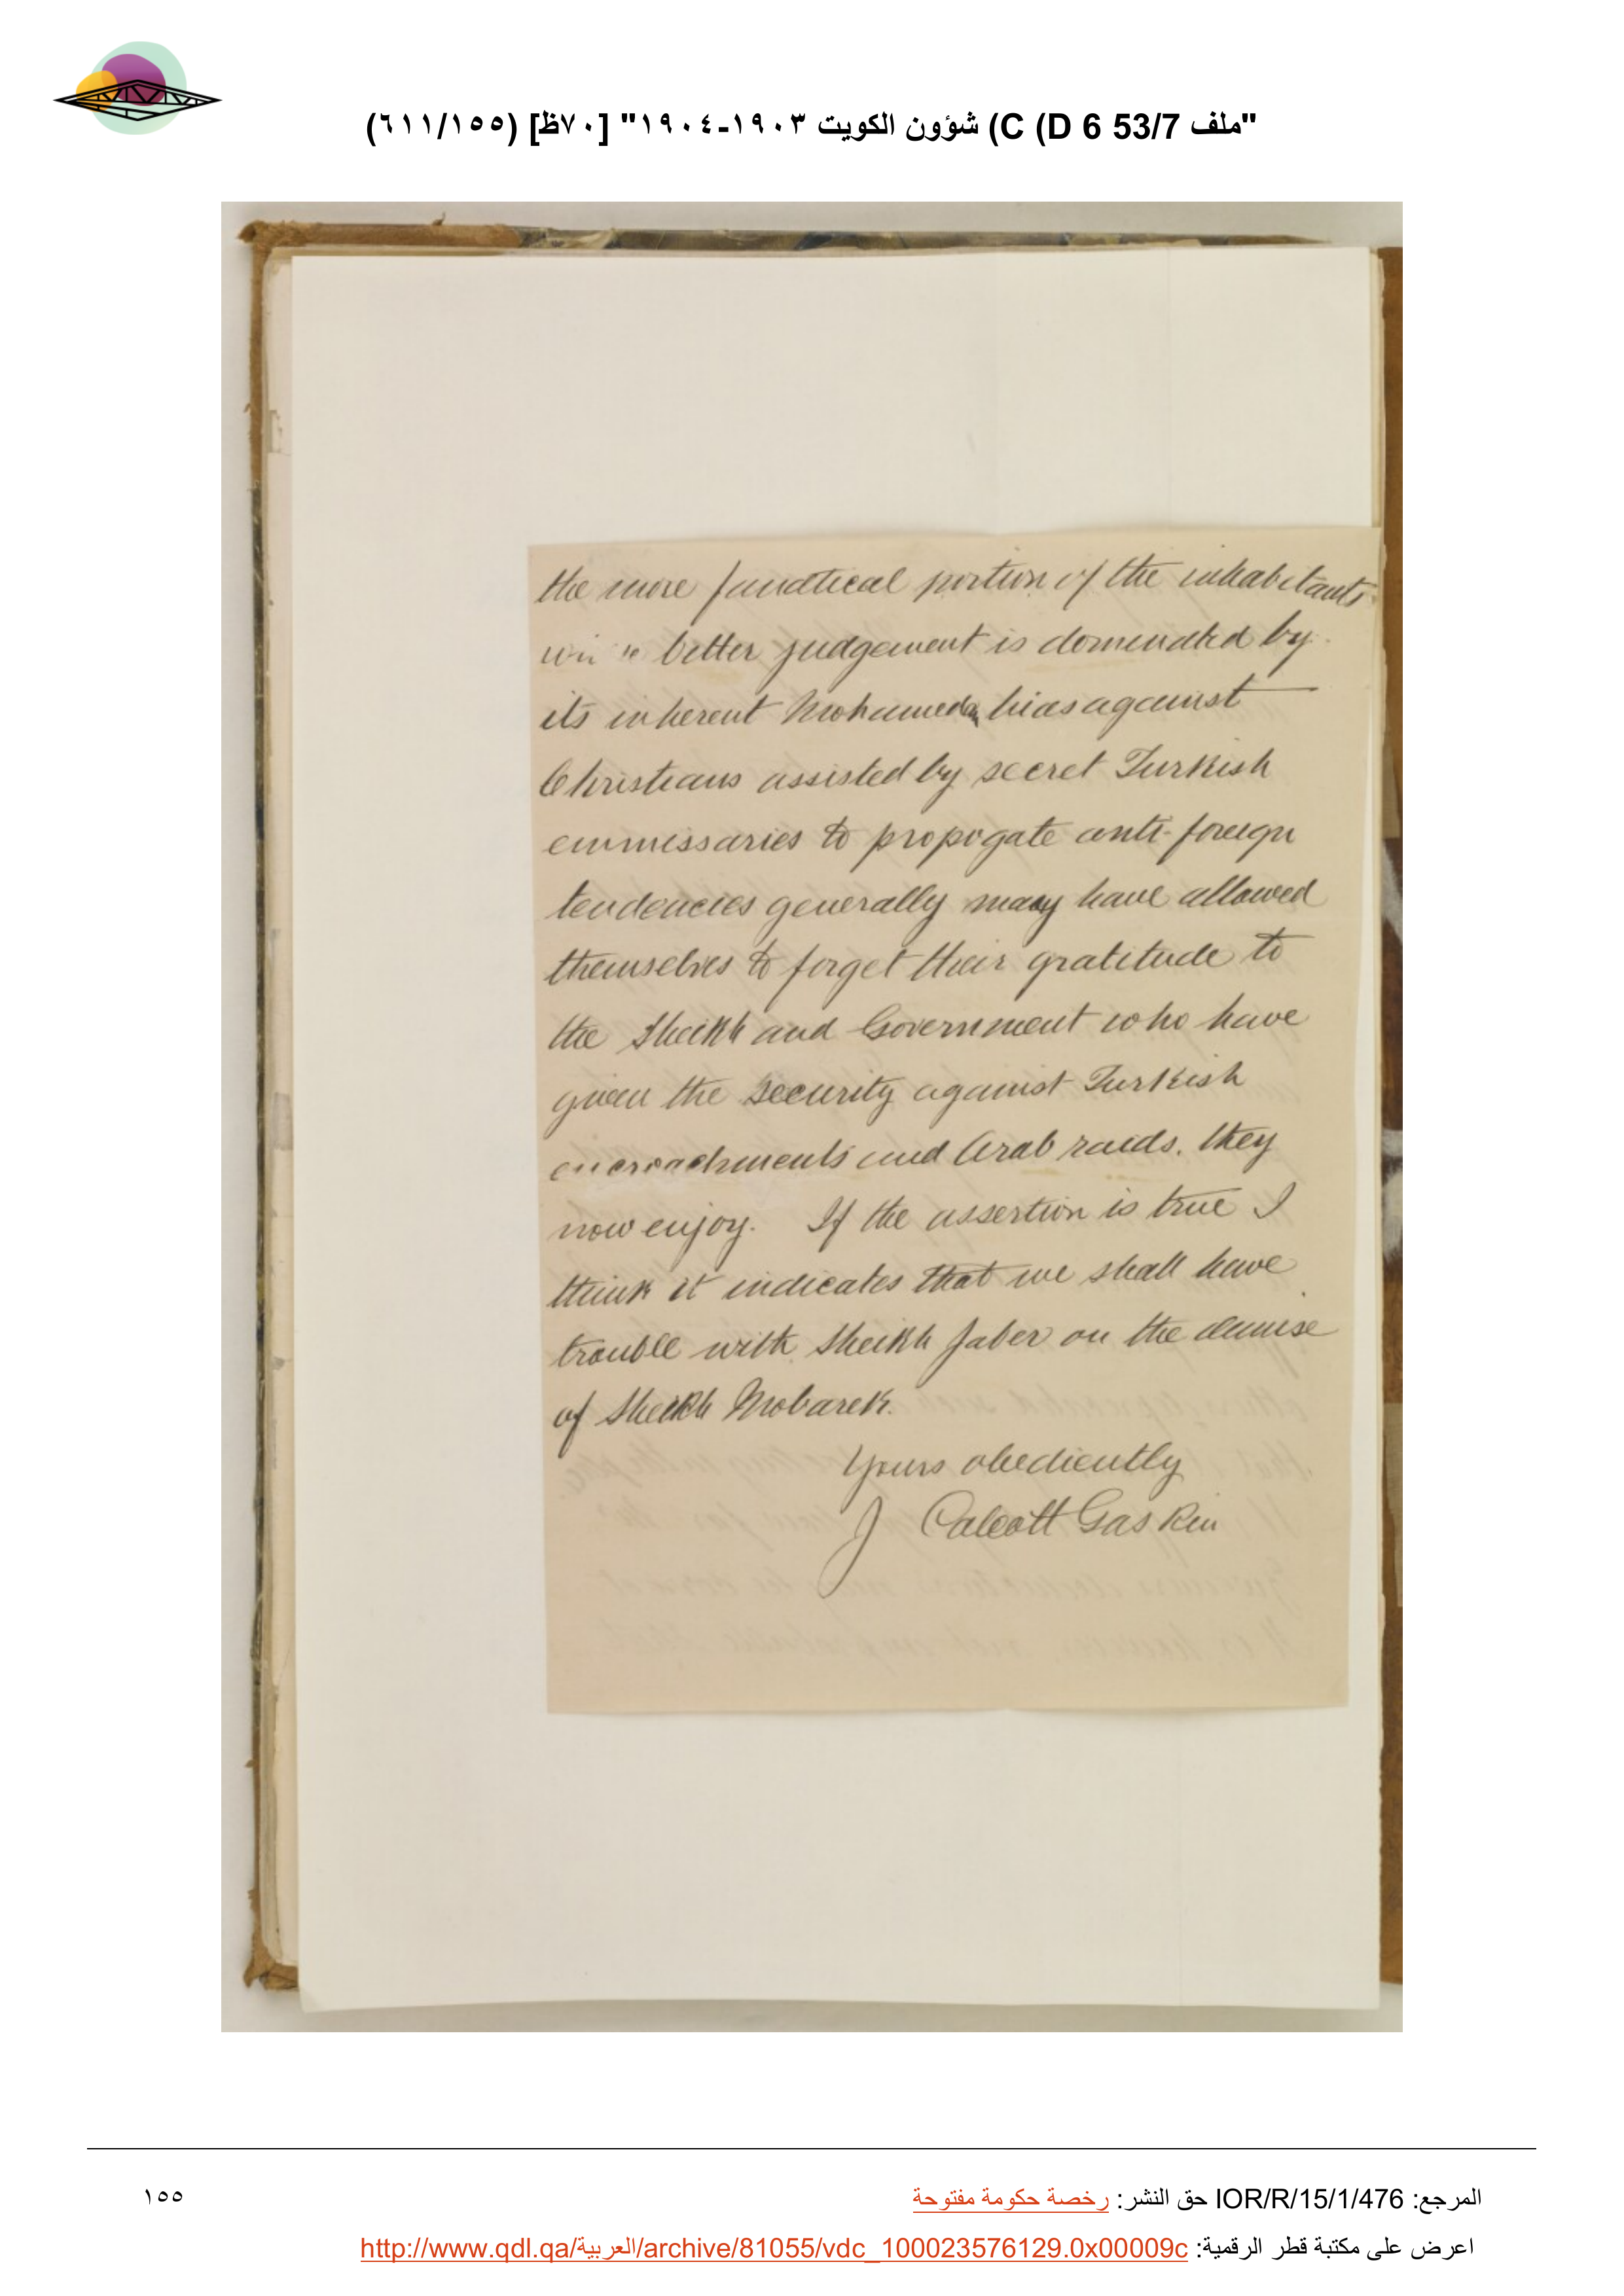 "ملف 53/7 D 6) C) شؤون الكويت ١٩٠٣-١٩٠٤" [٧٠ظ] (٦١١/١٥٥)
the more fanatical portion of the inhabitants
better judgement is domenated by
its inherent Mohamedan bias against
Christians assisted by secret Turkish
emmissaries to propogate anti-foreign
tendencies generally may have allowed
themselves to forget their gratitude to
the Sheikh and Government who have
given the security against Turkish
encroachments and Arab raids, they
now enjoy. If the assertion is true I
think it indicates that we shall have
trouble with Sheikh Jaber on the demise
of Sheikh Mobarek.
Yours obediently
J Calcott Gaskin
المرجع: IOR/R/15/1/476 حق النشر: رخصة حكومة مفتوحة
١٥٥
اعرض على مكتبة قطر الرقمية: http://www.qdl.qa/العربية/archive/81055/vdc_100023576129.0x00009c